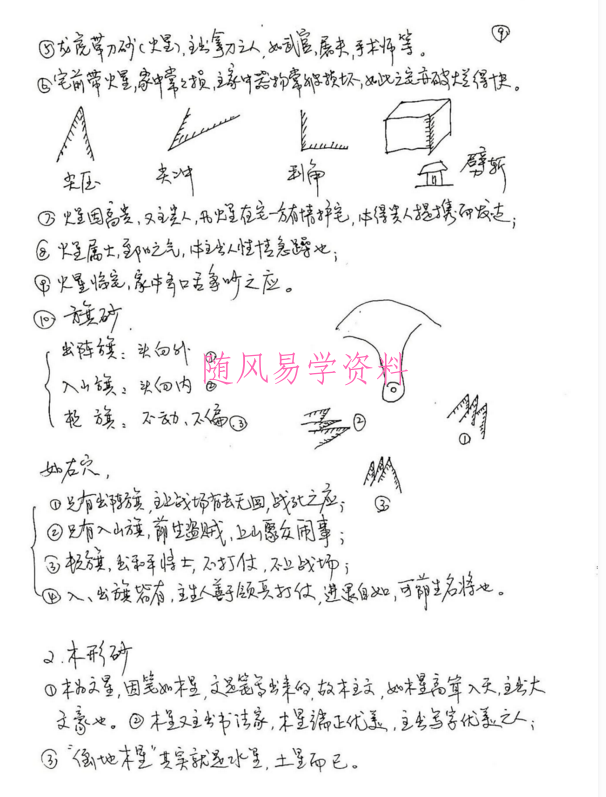 ⑨
⑤龙虎带刀砂(火星),主出拿刀之人,如武官,屠夫,手术师等。
⑥宅前带火星,家中常之损,主家中器物常损坏,如此之宅亦破烂得快。
尖压 尖冲 到角 劈斩
⑦火星因高贵,又主贵人,凡火星在宅一方有情持宅,体得贵人提携而发达;
⑧火星属土,至阳之气,体主出人性情急躁也;
⑨火星临宅,家中多口舌争吵之应。
⑩旗砂
出阵旗:头向外①
入山旗:头向内②
旗:不动,不偏③
随风易学资料
②
①
③
如左穴,
①只有出阵旗,主上战场有去无回,战死之应;
②只有入山旗,前生盗贼,上山聚众闹事;
③旗,出和平将士,不打仗,不上战场;
④入、出旗皆有,主生人善于领兵打仗,进退自如,可前生名将也。
2.木形砂
①木为文星,因笔如木星,文是笔写出来的,故木主文,如木星高耸入天,主出大
文豪也。②木星又主出书法家,木星端正优美,主出写字优美之人;
③"倒地木星"其实就是水星,土星而已。